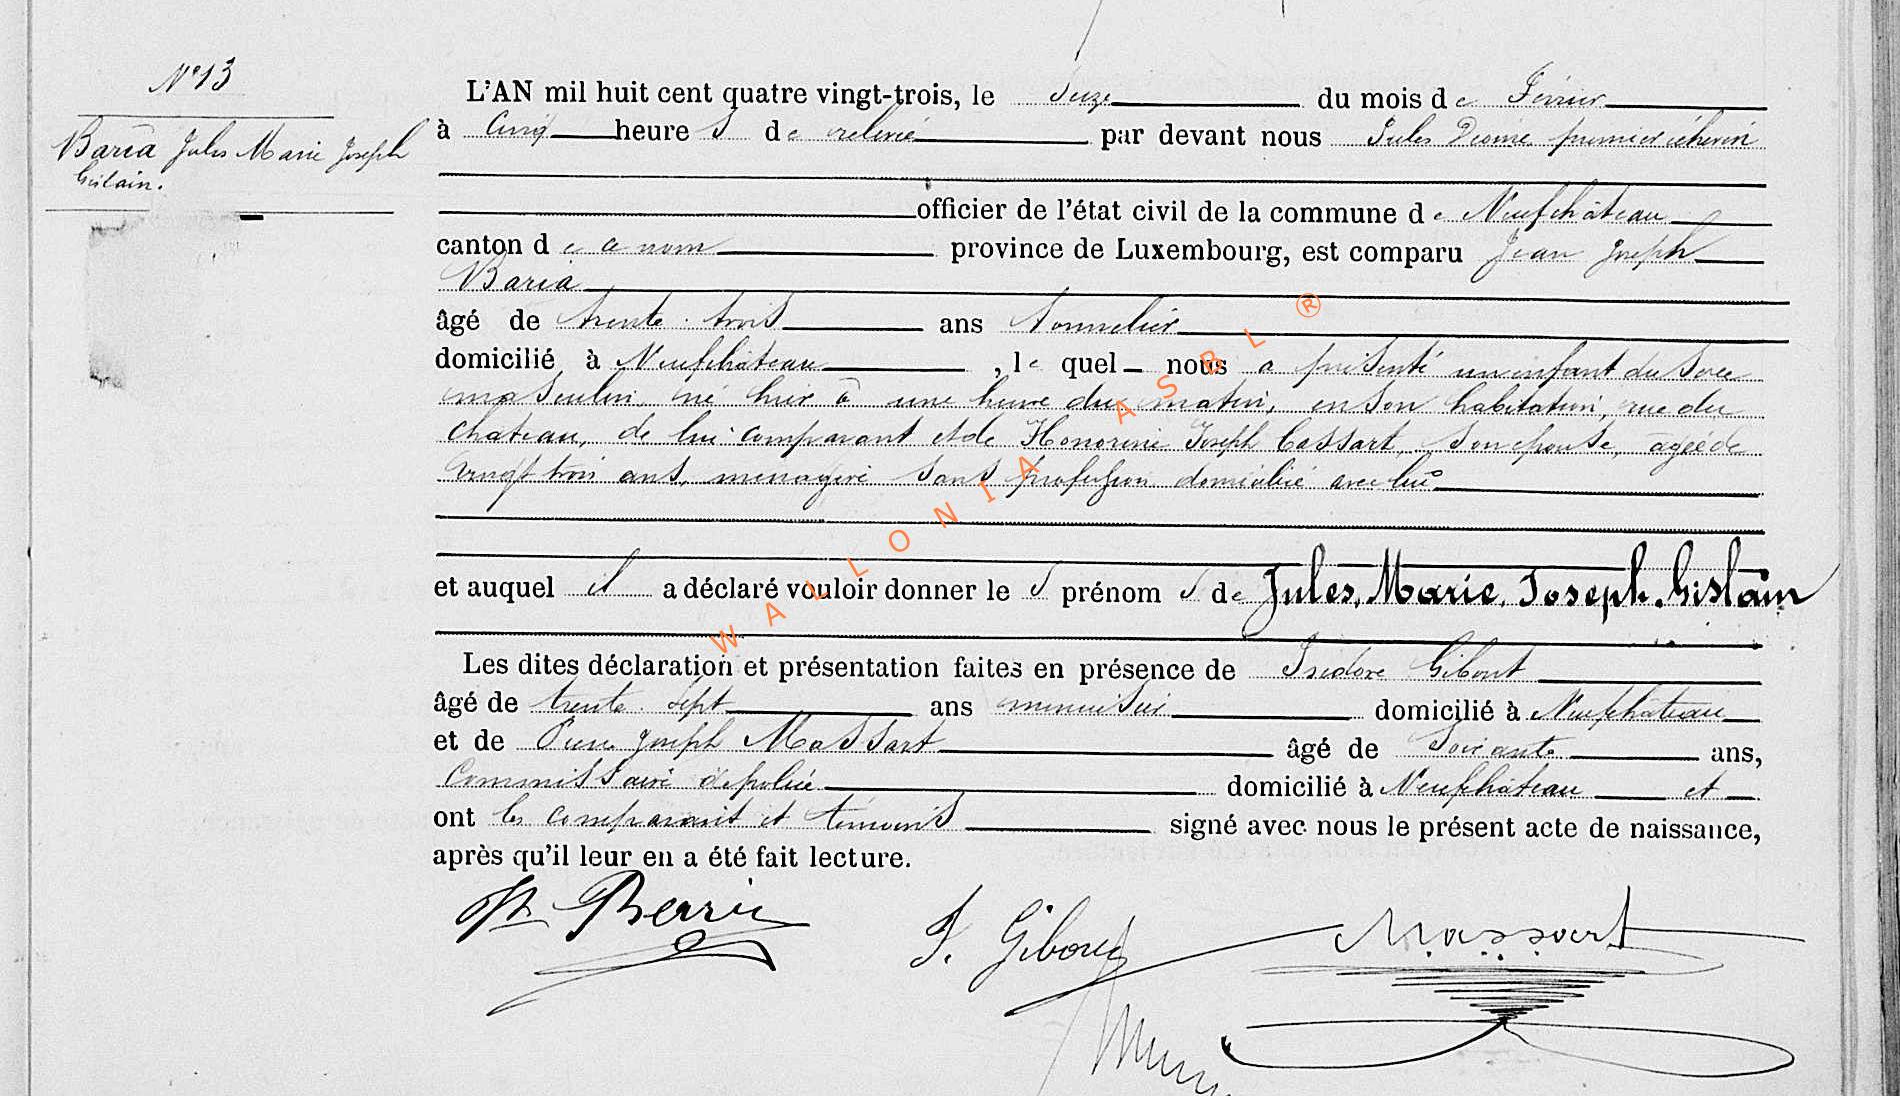 N° 13
Baria Jules Marie Joseph
Gislain.
L'AN mil huit cent quatre vingt-trois, le seize du mois de Février
à Cinq heures de relevé par devant nous Jules premier échevin
officier de l'état civil de la commune de Neufchâteau
canton de ce nom province de Luxembourg, est comparu Jean Joseph
Baria
âgé de trente-trois ans tonnelier
domicilié à Neufchâteau, le quel nous a présenté un enfant du sexe
masculin, né hier à une heure du matin, en son habitation, rue du
château, de lui comparant et de Honorine Joseph Cassart, son épouse, âgée de
vingt trois ans, menagère sans profession domiciliée avec lui
et auquel il a déclaré vouloir donner les prénoms de Jules, Marie, Joseph, Gislain
Les dites déclaration et présentation faites en présence de Isidore Gibout
âgé de trente-sept ans menuisier domicilié à Neufchâteau
et de Pierre Joseph Massart âgé de soixante ans,
commissaire de police domicilié à Neufchâteau et
ont les comparant et témoins signé avec nous le présent acte de naissance,
après qu'il leur en a été fait lecture.
I. Gibout Massart
WALLONIA ASBL ®